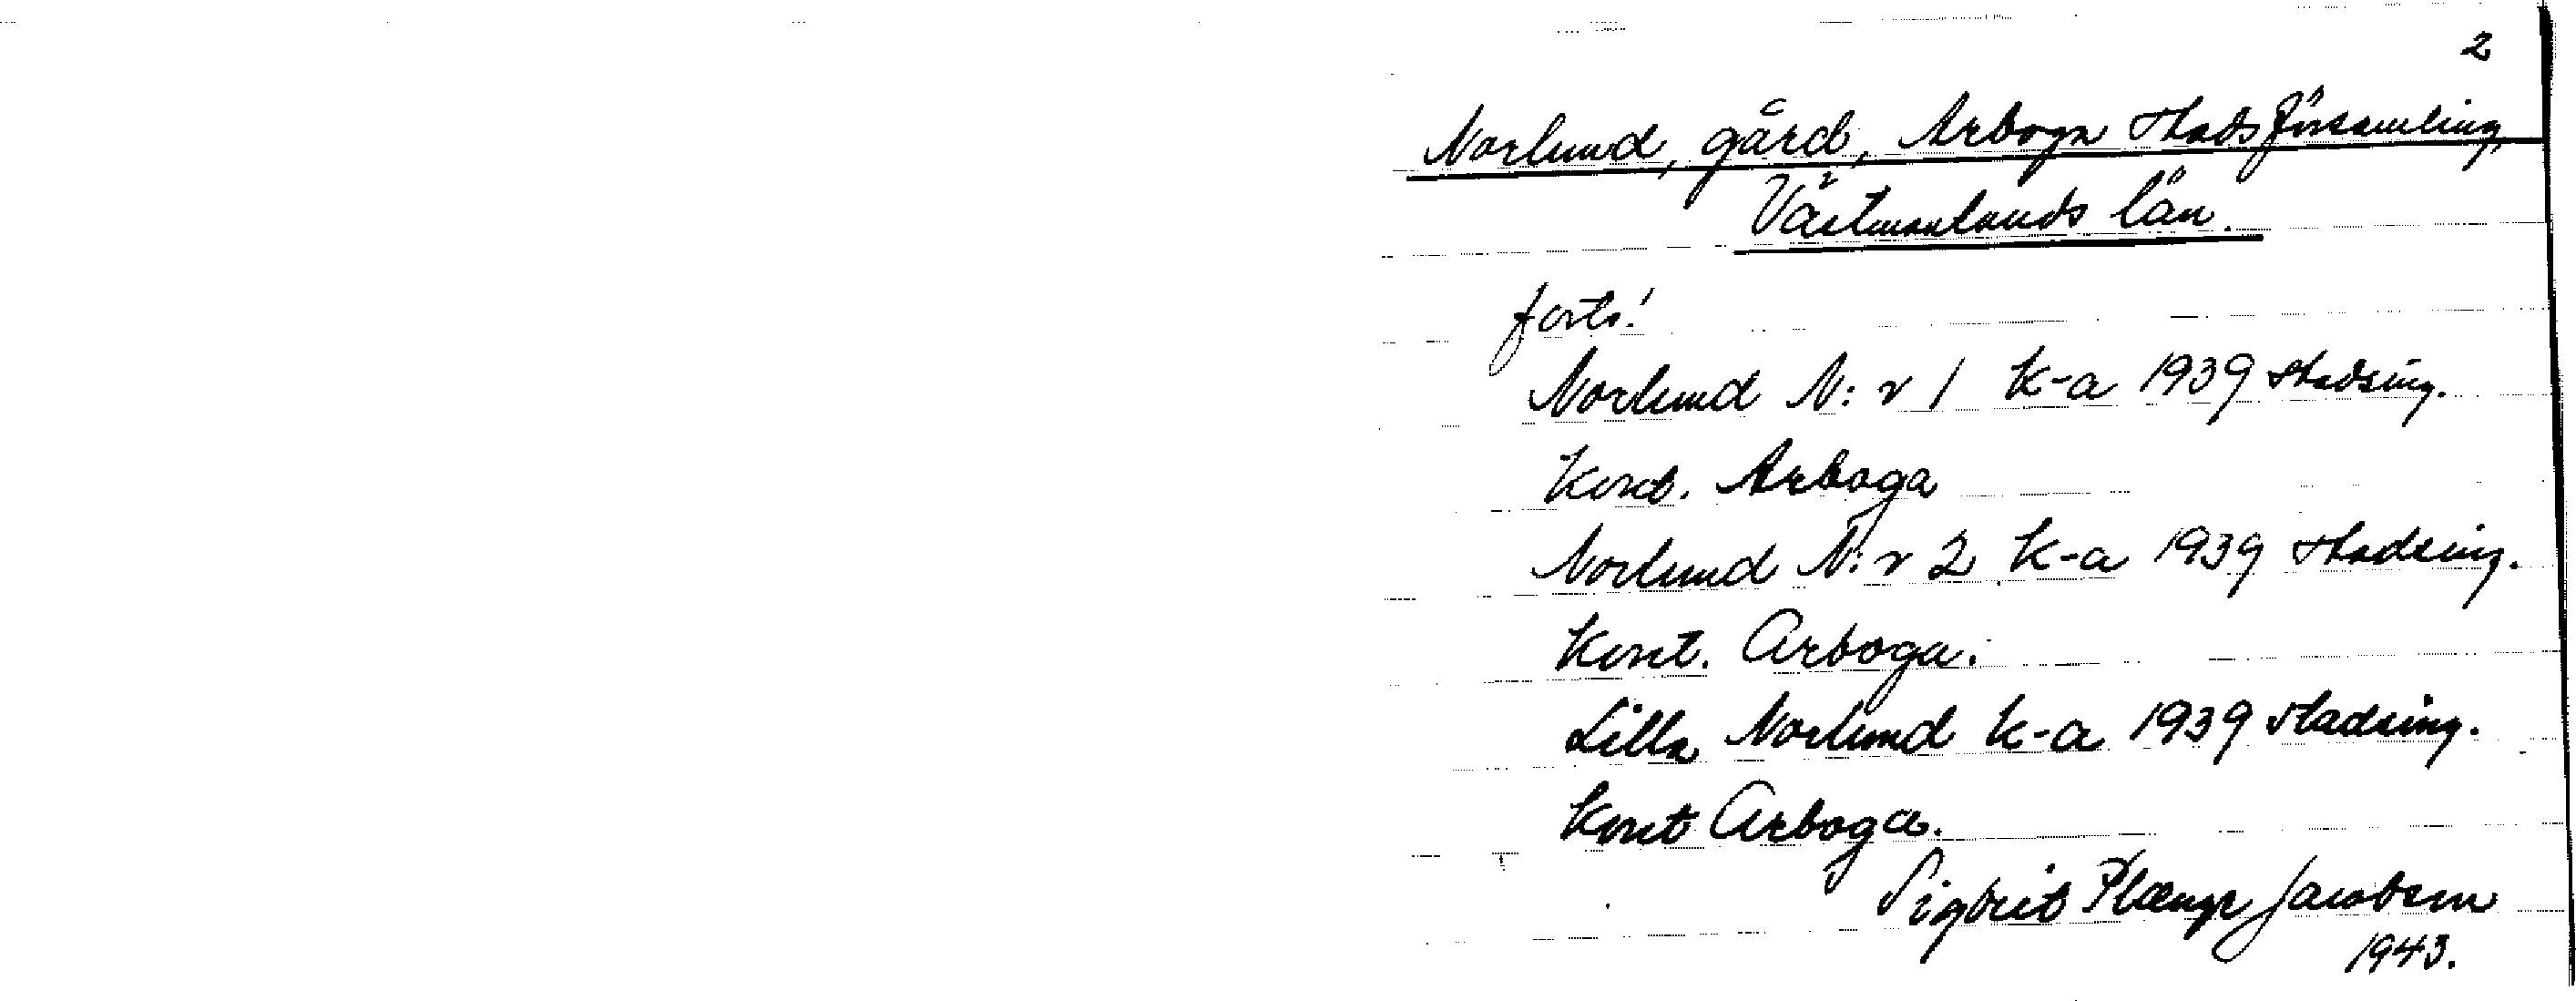 2
Norlund, gård, Arboga stadsförsamling,
Västmanlands län.
forts!
Norlund N:r 1 K-a 1939 stadsing.
Kont. Arboga
Norlund N:r 2 K-a 1939 stadsing.
Kont. Arboga.
Lilla Norlund K-a 1939 stadsing.
Kont Arboga.
Sigbrit Plænge Jacobson
1943.